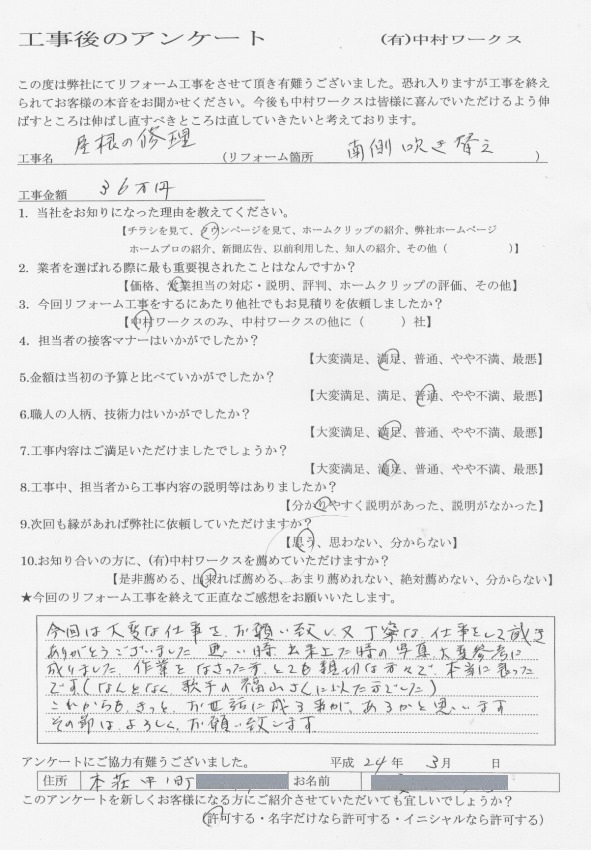 工事後のアンケート (有)中村ワークス
この度は弊社にてリフォーム工事をさせて頂き有難うございました。恐れ入りますが工事を終え
られてお客様の本音をお聞かせください。今後も中村ワークスは皆様に喜んでいただけるよう伸
ばすところは伸ばし直すべきところは直していきたいと考えております。
工事名 屋根の修理 (リフォーム箇所 南側吹き替え )
工事金額 36万円
1. 当社をお知りになった理由を教えてください。
【チラシを見て、タウンページを見て、ホームクリップの紹介、弊社ホームページ
ホームプロの紹介、新聞広告、以前利用した、知人の紹介、その他( )】
2. 業者を選ばれる際に最も重要視されたことはなんですか?
【価格、営業担当の対応・説明、評判、ホームクリップの評価、その他】
3. 今回リフォーム工事をするにあたり他社でもお見積りを依頼しましたか?
【中村ワークスのみ、中村ワークスの他に( )社】
4. 担当者の接客マナーはいかがでしたか?
【大変満足、満足、普通、やや不満、最悪】
5.金額は当初の予算と比べていかがでしたか?
【大変満足、満足、普通、やや不満、最悪】
6.職人の人柄、技術力はいかがでしたか?
【大変満足、満足、普通、やや不満、最悪】
7.工事内容はご満足いただけましたでしょうか?
【大変満足、満足、普通、やや不満、最悪】
8.工事中、担当者から工事内容の説明等はありましたか?
【分かりやすく説明があった、説明がなかった】
9.次回も縁があれば弊社に依頼していただけますか?
【思う、思わない、分からない】
10.お知り合いの方に、(有)中村ワークスを薦めていただけますか?
【是非薦める、出来れば薦める、あまり薦めれない、絶対薦めない、分からない】
★今回のリフォーム工事を終えて正直なご感想をお願いいたします。
今回は大変な仕事を、お願い致し、又丁寧な、仕事をして戴き
ありがとうございました 悪い時 出来上た時の写真大変参考に
成りました、作業をなさった方、とても親切な方々で、本当に良かった
です(なんとなく歌手の福山さんに似た方でした)
これからも、きっと、お世話に成る事が、あるかと思います
その節は、よろしく、お願い致します
アンケートにご協力有難うございました。 平成 24年 3月 日
住所 本荘中町 お名前
このアンケートを新しくお客様になる方にご紹介させていただいても宜しいでしょうか?
(許可する・名字だけなら許可する・イニシャルなら許可する)